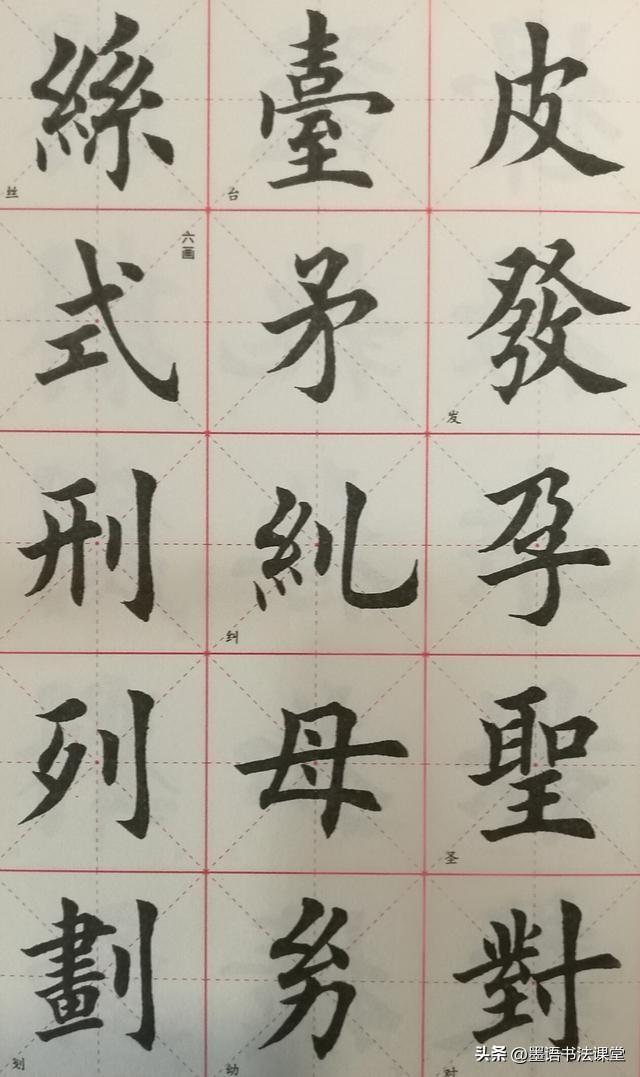 皮
發 发
孕
聖 圣
對 对
臺 台
矛
糺 纠
母
幼 幼
絲 丝
六画
式
刑
列
劃 划
头条 @墨语书法课堂